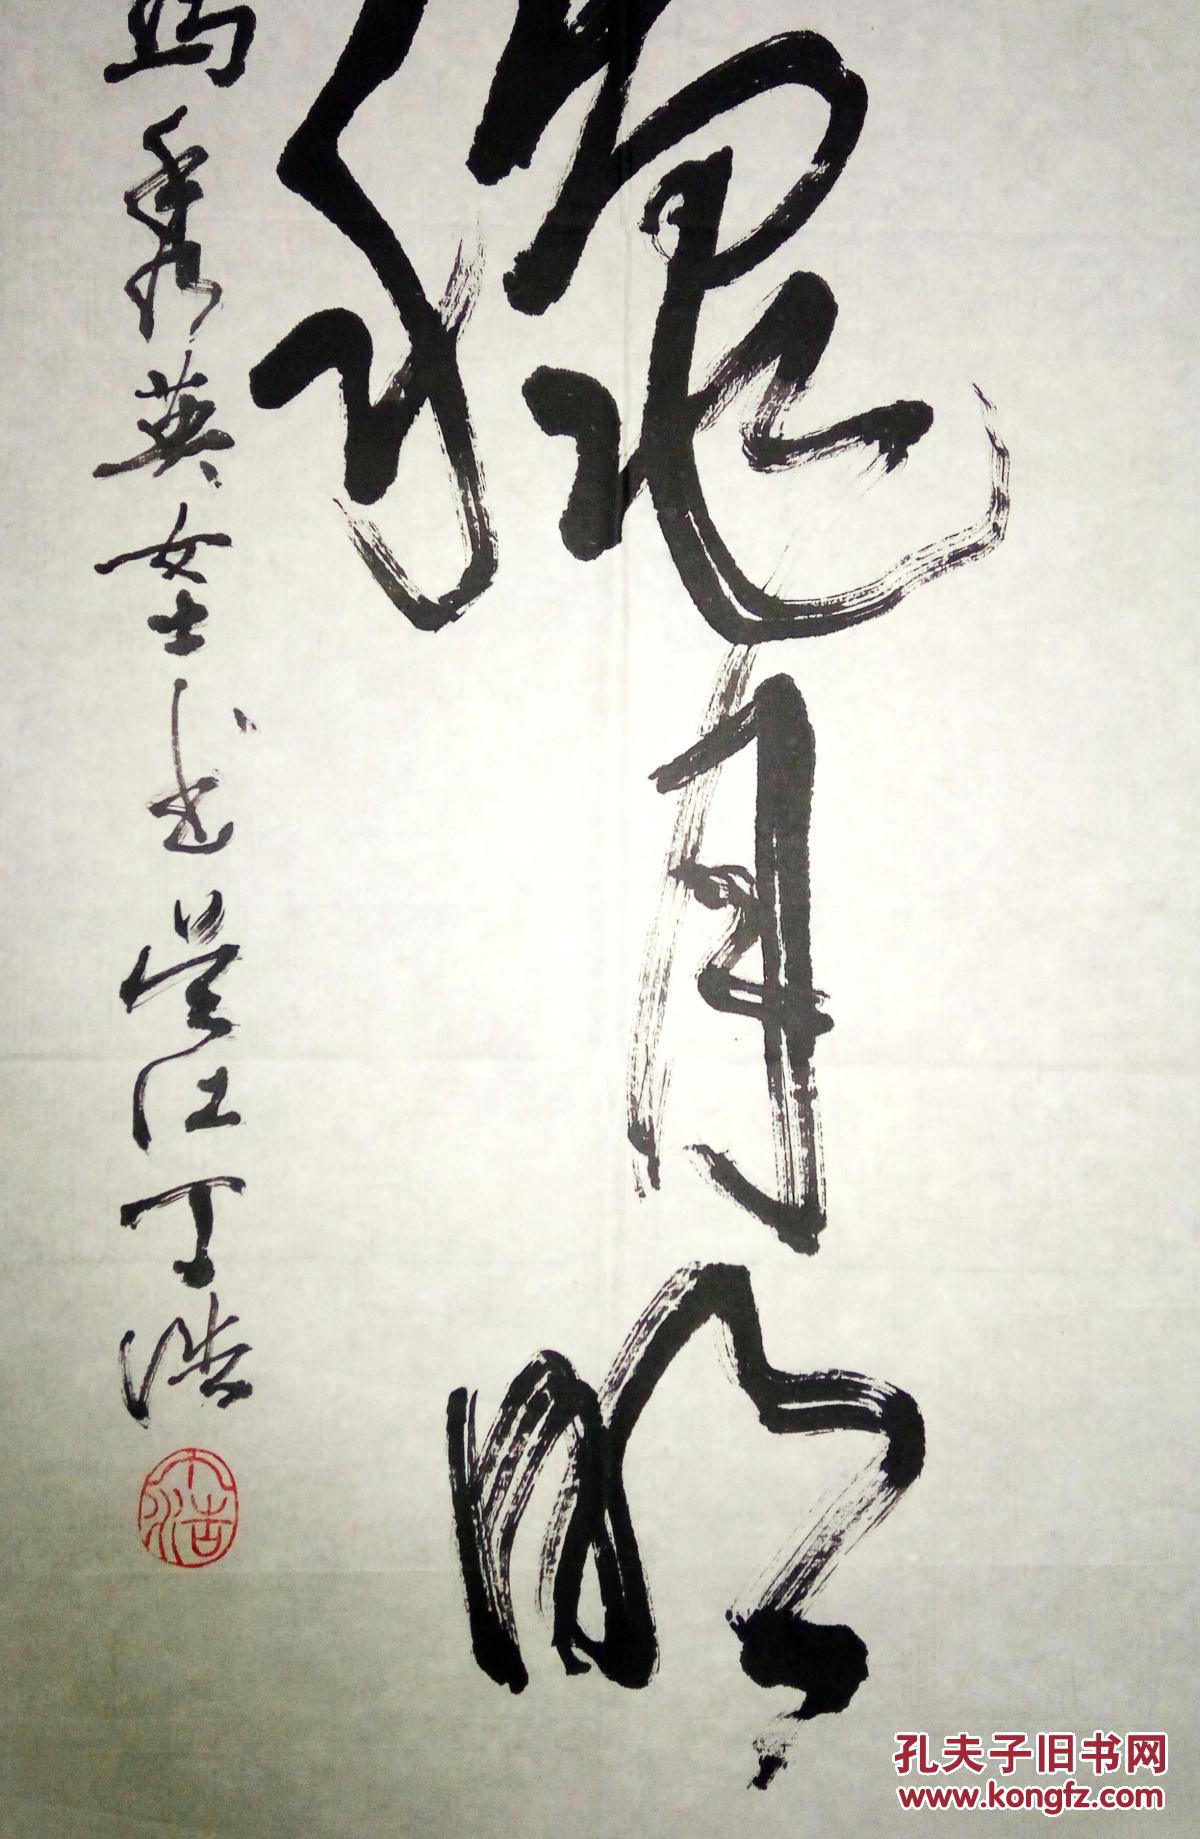 月明
秀英女士
吴江丁浩
丁浩
孔夫子旧书网
www.kongfz.com